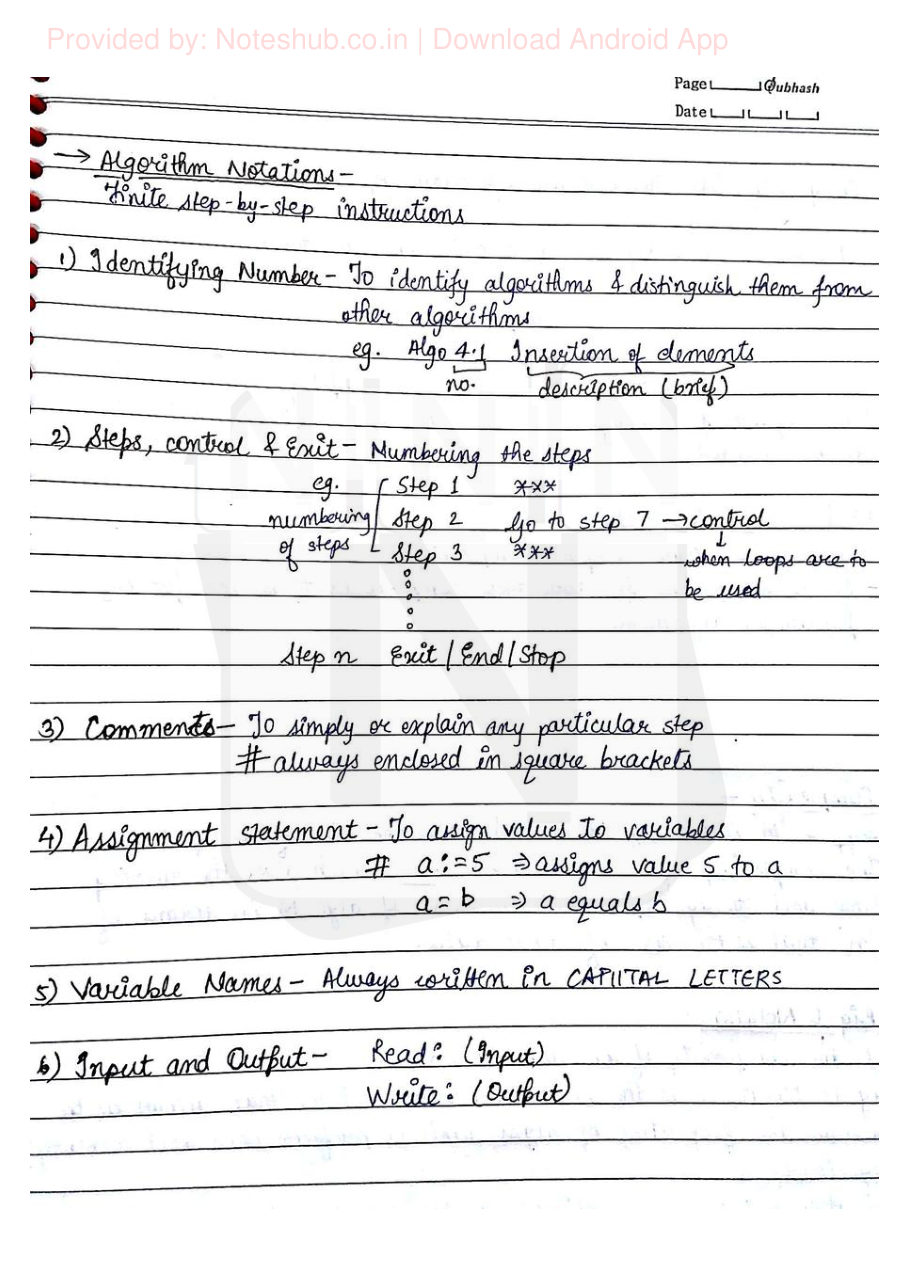 Provided by: Noteshub.co.in | Download Android App
Page Qubhash
Date
→ Algorithm Notations –
Finite step-by-step instructions
1) Identifying Number – To identify algorithms & distinguish them from
other algorithms
eg. Algo 4.1 Insertion of elements
no. description (brief)
2) Steps, control & Exit – Numbering the steps
eg. Step 1 ***
numbering Step 2 Go to step 7 → control
of steps Step 3 *** ↓
when loops are to
be used
Step n Exit / End / Stop
3) Comments – To simply or explain any particular step
# always enclosed in square brackets
4) Assignment statement – To assign values to variables
# a := 5 ⇒ assigns value 5 to a
a = b ⇒ a equals b
5) Variable Names – Always written in CAPIITAL LETTERS
6) Input and Output – Read: (Input)
Write: (Output)